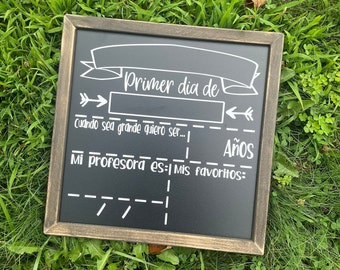 Primer dia de
Cuando sea grande quiero ser...
Años
Mi profesora es:
Mis favoritos:
/ /